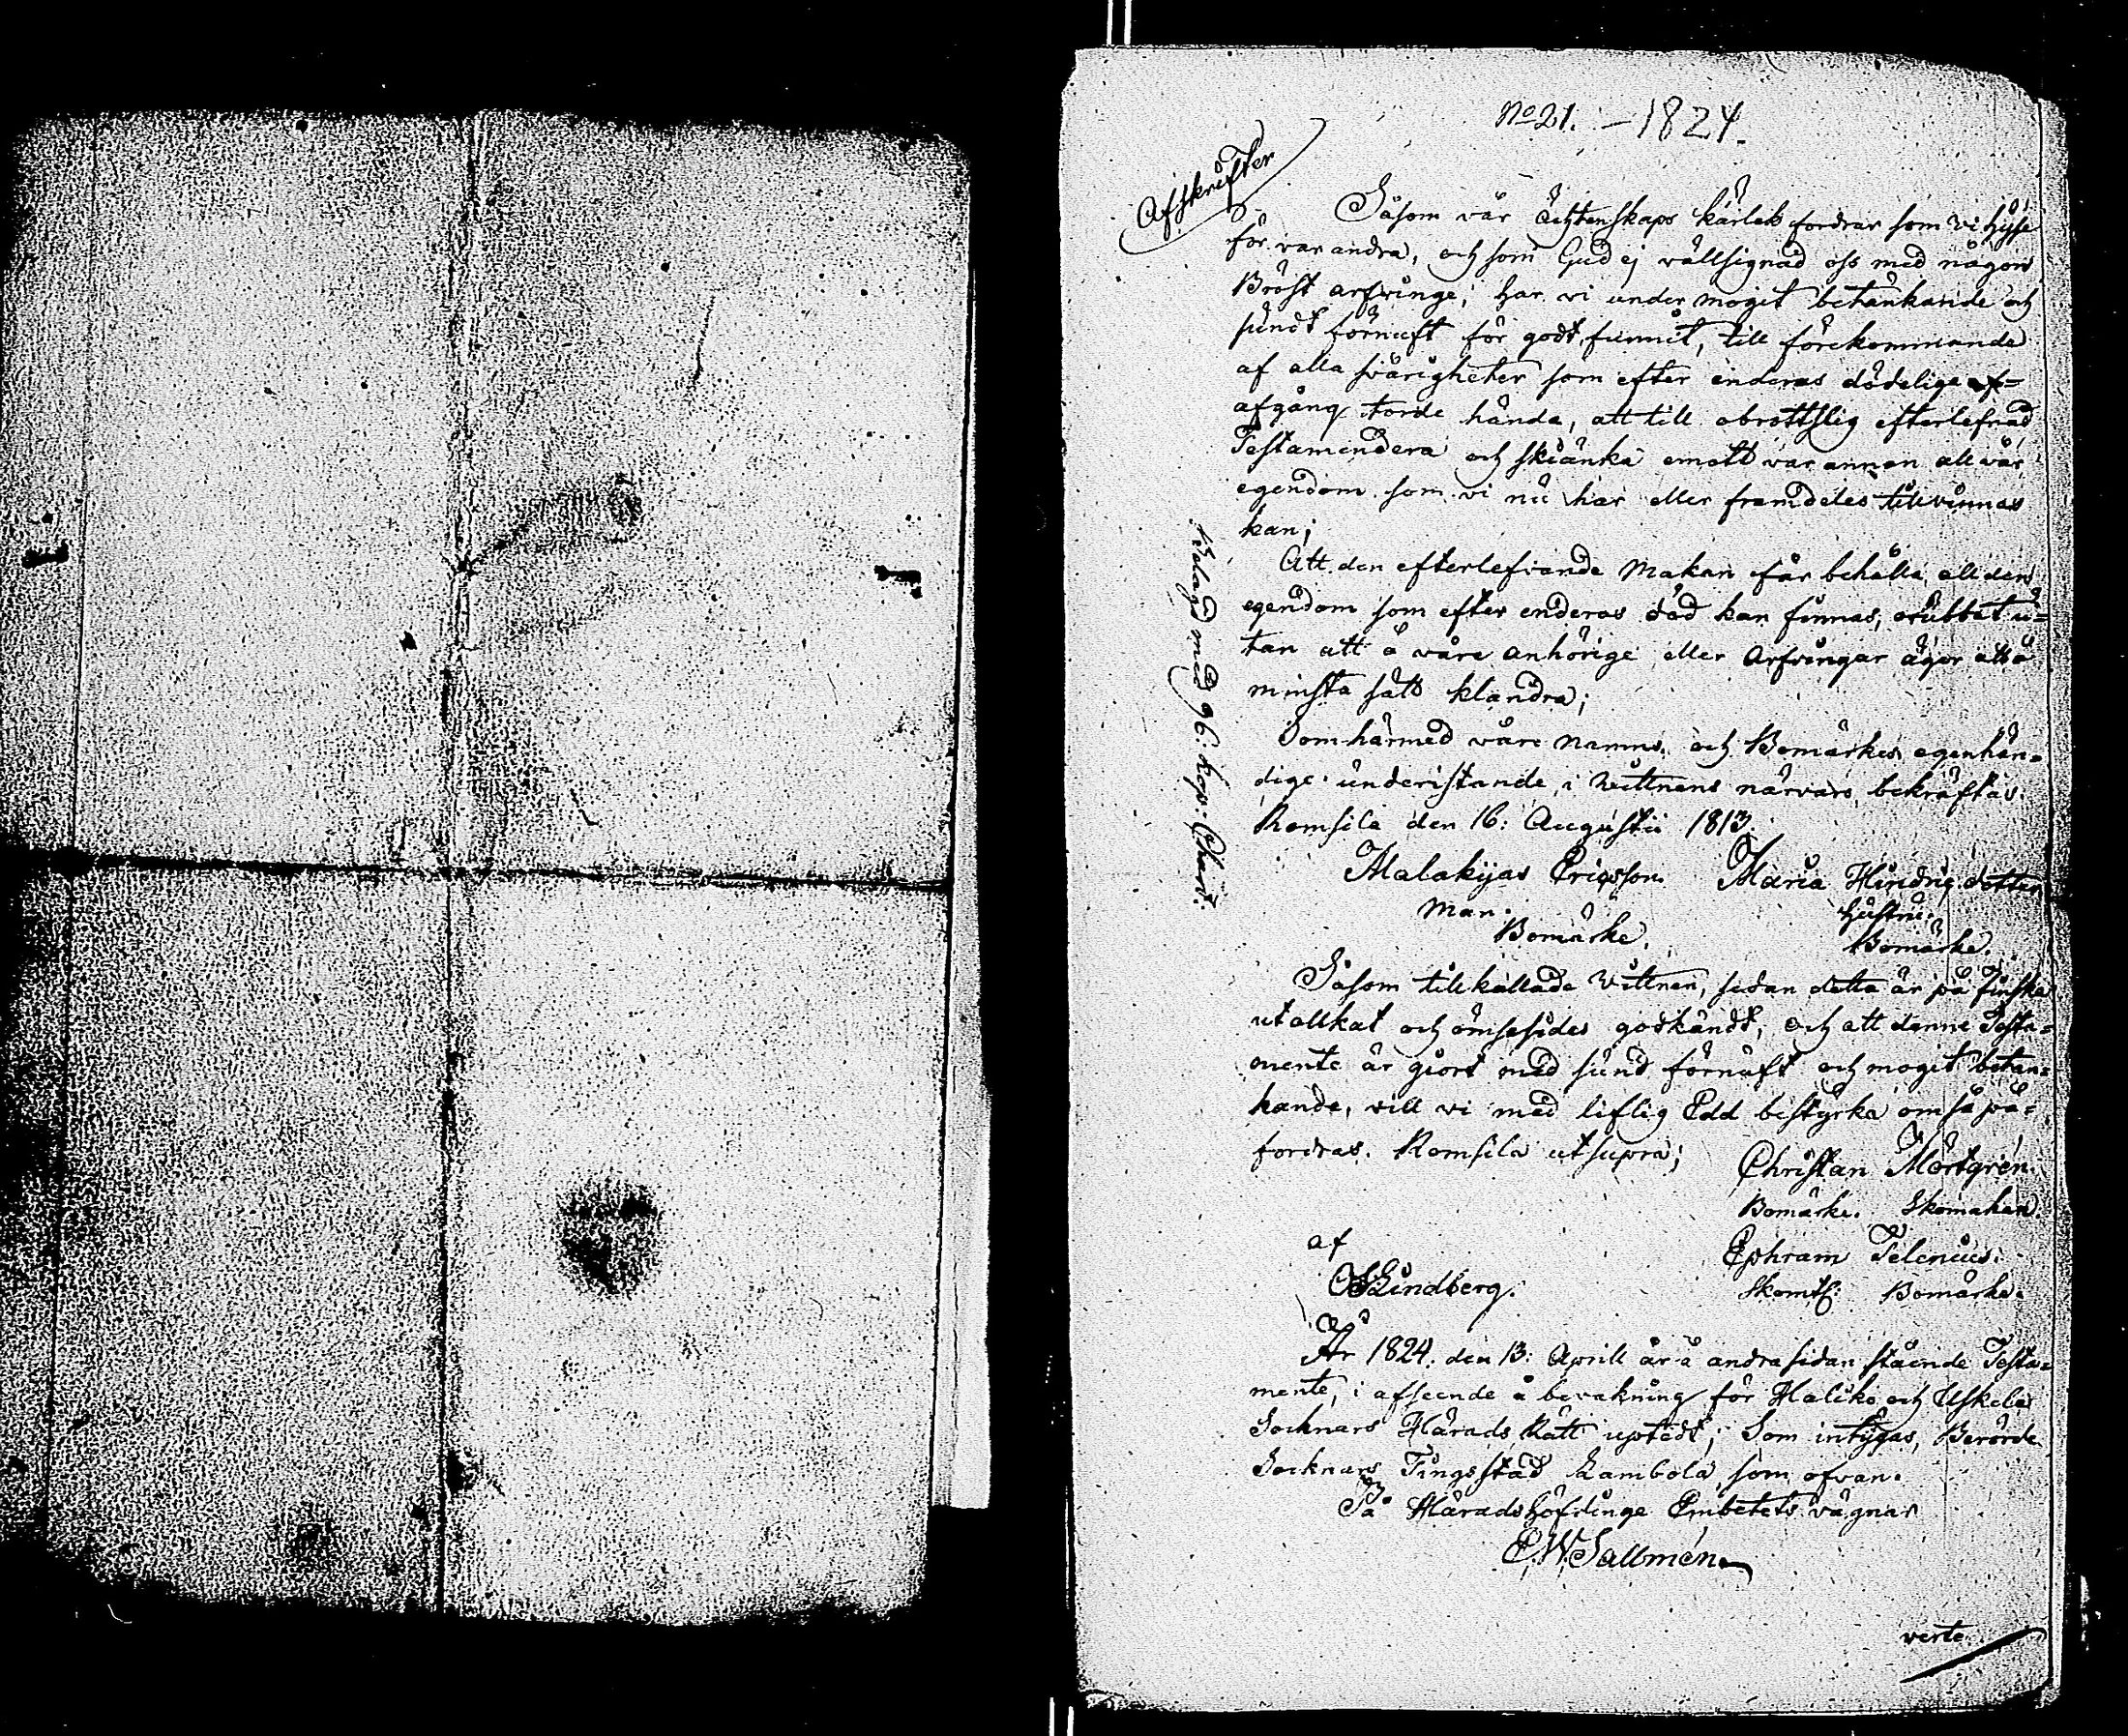 No 21. – 1824.
Afskrifter
Såsom vår Ächtenskaps kärlek fordrar som vi hysse
för varandra, och som Gud ej vällsignad oss med någon
Bröst arfvinge, har vi under moget betänkande och
sundt förnuft för godt funnit, till förekommande
af alla svårigheter som efter enderas dödelige af=
afgång torde hända, att till obrottslig efterlefnad
Testamendera och skiänka emott var annan all vår
egendom som vi nu har eller framdeles tillvinnas
kan;
Att den efterlefvande Makan får behålla all den
egendom som efter enderas död kan finnas, orubbat u=
tan att å våre anhörige eller Arfvingar äger att å
minsta sätt klandra;
Som härmed våre namns och Bomärkes egenhän=
dige understande, i Vittnens närvaro, bekräftas.
Romsila den 16: Augustii 1813.
Malakijas Ericsson. Maria Hindricdotter
Man. hustru.
Bomärke. Bomärke.
Såsom tillkallade Vittnen, sedan detta är på finska
utallkat och ömsesides godkändt, och att denne Testa=
mente är giort med sund förnuft och moget betän=
kande, vill vi med liflig Edd bestyrka om så på=
fordras. Romsila ut supra;
Christian Mörtgren.
Bomärke. Skomakare.
Ephram Telenius.
Skomts: Bomärke.
af
Lindberg.
År 1824. den 13: Aprill är å andra sidan stående Testa=
mente, i afseende å bevakning för Haliko och Uskela
Socknars Härads Rätt uptedt; Som intygas, Berörde
Socknars Tingsstad Lambola som ofvan.
På Häradshöfdinge Embetets vägnar
E.W. Sallmén
verte.
Belagd med 96: kop: Chart: